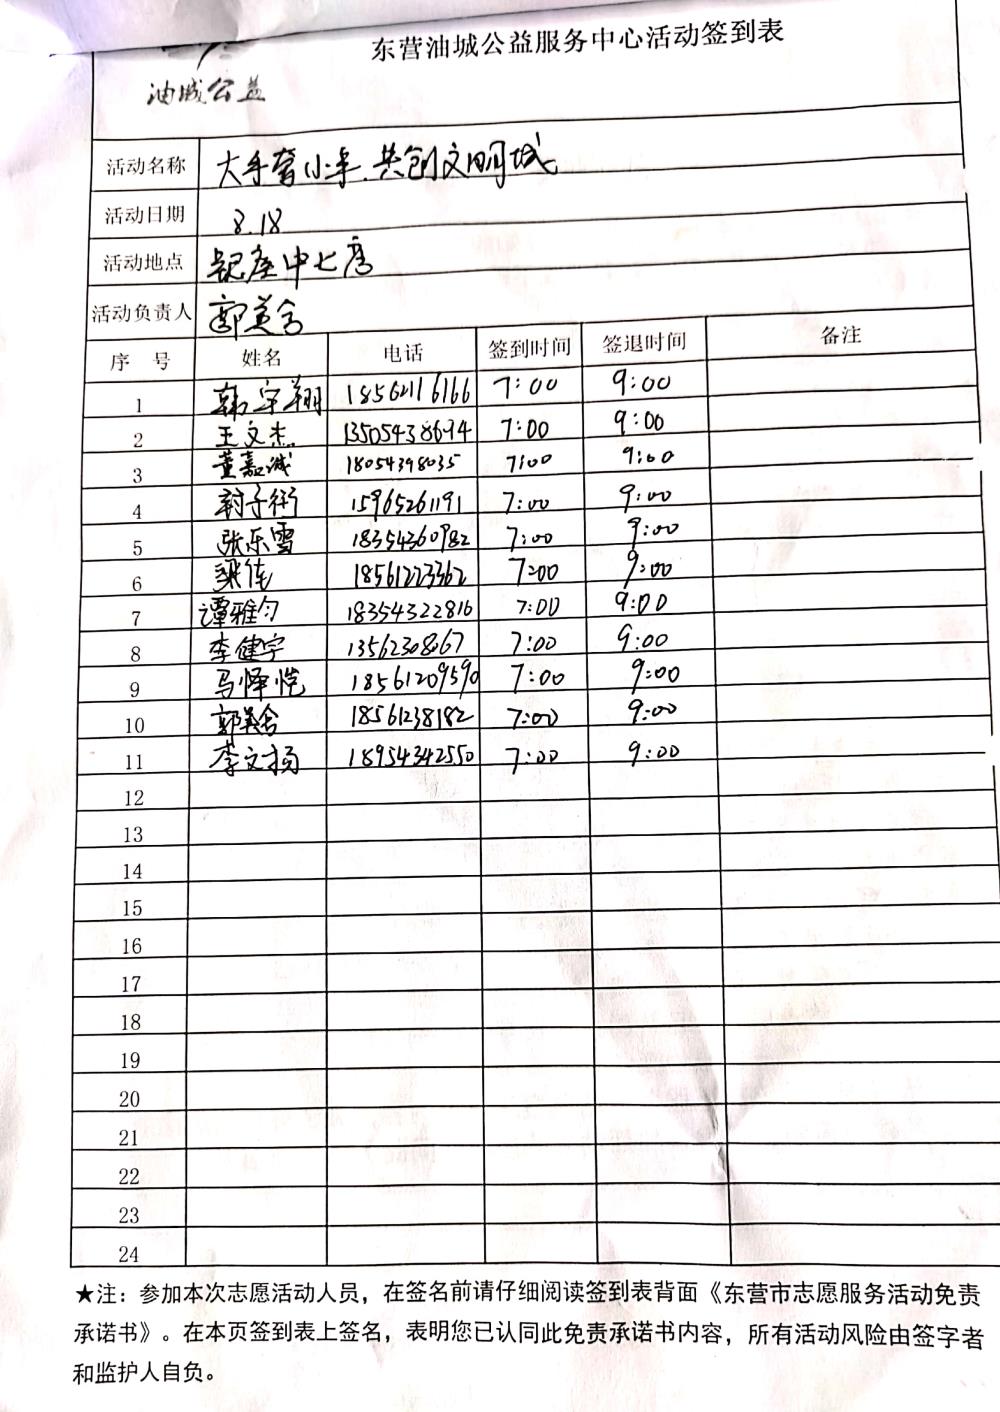 东营油城公益服务中心活动签到表
油城公益
活动名称 大手牵小手.共创文明城
活动日期 8.18
活动地点
活动负责人 郭美含
序 号 姓名 电话 签到时间 签退时间 备注
1 韩宇翔 18562116166 7:00 9:00
2 王文杰 13505438694 7:00 9:00
3 董嘉诚 18054398035 7:00 9:00
4 15965261191 7:00 9:00
5 张乐雪 18354360982 7:00 9:00
6 梁佳 18561223362 7:00 9:00
7 谭雅匀 18354322816 7:00 9:00
8 李健宇 1356230867 7:00 9:00
9 马怿恺 18561209590 7:00 9:00
10 郭美含 18561238182 7:00 9:00
11 李文扬 18954342550 7:00 9:00
12
13
14
15
16
17
18
19
20
21
22
23
24
★注：参加本次志愿活动人员，在签名前请仔细阅读签到表背面《东营市志愿服务活动免责
承诺书》。在本页签到表上签名，表明您已认同此免责承诺书内容，所有活动风险由签字者
和监护人自负。